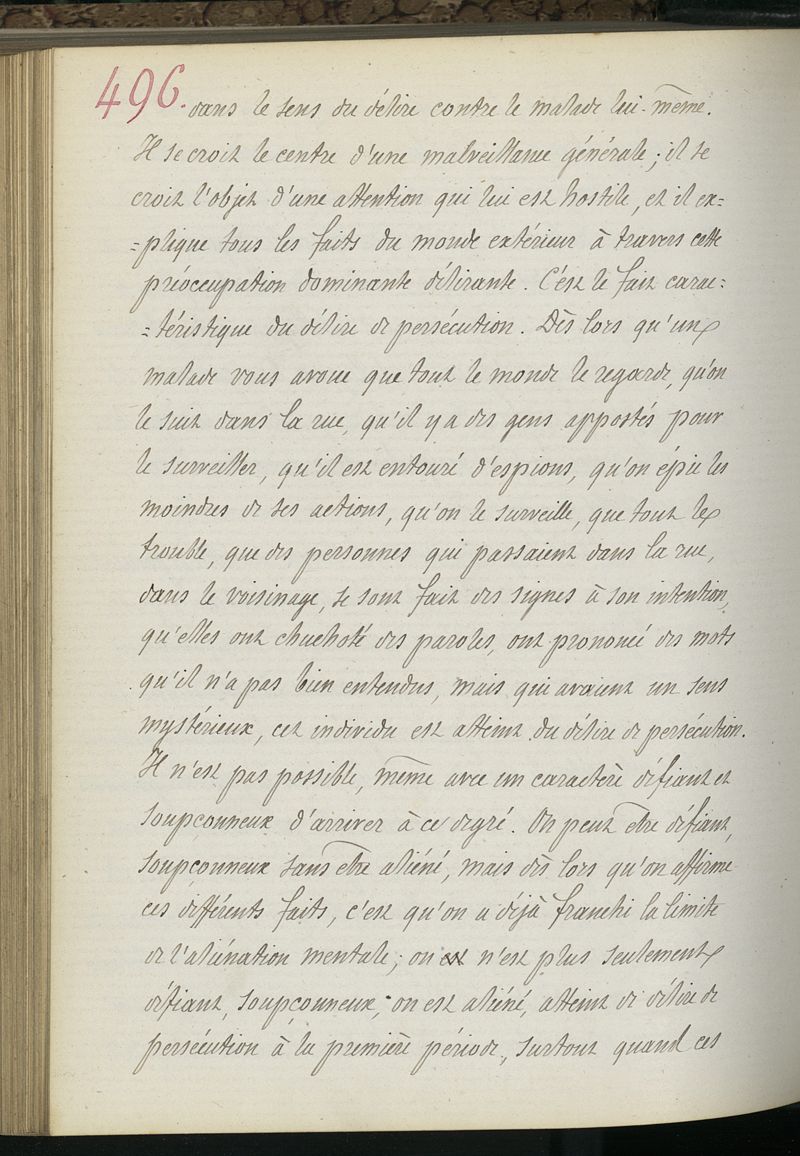 496.
dans le sens du délire contre le malade lui-même.
Il se croit le centre d'une malveillance générale ; il se
croit l'objet d'une attention qui lui est hostile, et il ex=
=plique tous les faits du monde extérieur à travers cette
préoccupation dominante délirante. C'est le fait carac=
=téristique du délire de persécution. Dès lors qu'un
malade vous avoue que tout le monde le regarde, qu'on
le suit dans la rue, qu'il y a des gens appostés pour
le surveiller, qu'il est entouré d'espions, qu'on épie les
moindres de ses actions, qu'on le surveille, que tout le
trouble, que des personnes qui passaient dans la rue,
dans le voisinage, se sont fait des signes à son intention,
qu'elles ont chuchoté des paroles, ont prononcé des mots
qu'il n'a pas bien entendus, mais qui avaient un sens
mystérieux, cet individu est atteint du délire de persécution.
Il n'est pas possible, même avec un caractère défiant et
soupçonneux d'arriver à ce degré. On peut être défiant,
soupçonneux sans être aliéné, mais dès lors qu'on affirme
ces différents faits, c'est qu'on a déjà franchi la limite
de l'aliénation mentale ; on n'est plus seulement
défiant, soupçonneux, on est aliéné, atteint de délire de
persécution à la première période, surtout quand ces